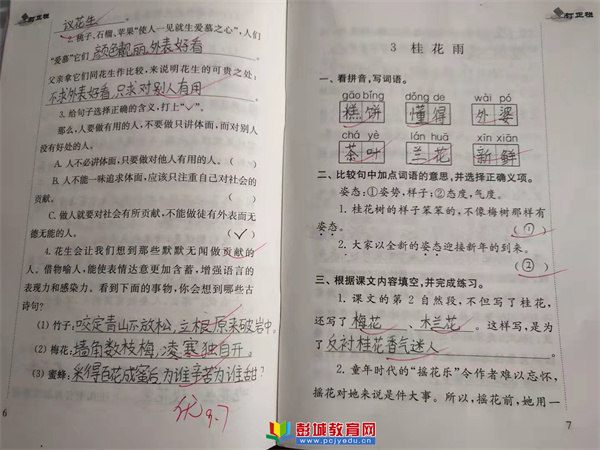 议花生
2.桃子、石榴、苹果“使人一见就生爱慕之心”,人们
“爱慕”它们颜色靓丽,外表好看。
父亲拿它们同花生作比较,来说明花生的可贵之处:
不求外表好看,只求对别人有用。
3.给句子选择正确的含义,打上“✓”。
那么,人要做有用的人,不要做只讲体面,而对别人
没有好处的人。
A.人不必讲体面,只要做对他人有用的人。( )
B.人不能一味追求体面,应该只注重自己对社会的
贡献。( )
C.做人就要对社会有所贡献,不能做徒有外表而无
德无能的人。(✓)
4.花生会让我们想到那些默默无闻做贡献的
人。借物喻人,能使表情达意更加含蓄,增强语言的
表现力和感染力。看到下面的事物,你会想到哪些古
诗句?
(1)竹子:咬定青山不放松,立根原来破岩中。
(2)梅花:墙角数枝梅,凌寒独自开。
(3)蜜蜂:采得百花成蜜后,为谁辛苦为谁甜?
优 9.7
6
3 桂花雨
一、看拼音,写词语。
gāo bǐng dǒng de wài pó
糕饼 懂得 外婆
chá yè lán huā xīn xiān
茶叶 兰花 新鲜
二、比较句中加点词语的意思,并选择正确义项。
姿态:①姿势,样子;②态度,气度。
1.桂花树的样子笨笨的,不像梅树那样有
姿态。(①)
2.大家以全新的姿态迎接新年的到来。
(②)
三、根据课文内容填空,并完成练习。
1.课文的第2自然段,不但写了桂花,
还写了梅花、木兰花。这样写,是为
了反衬桂花香气迷人。
2.童年时代的“摇花乐”令作者难以忘怀,
摇花对她来说是件大事。所以,摇花前,她用一
7
彭城教育网
www.pcjyedu.cn